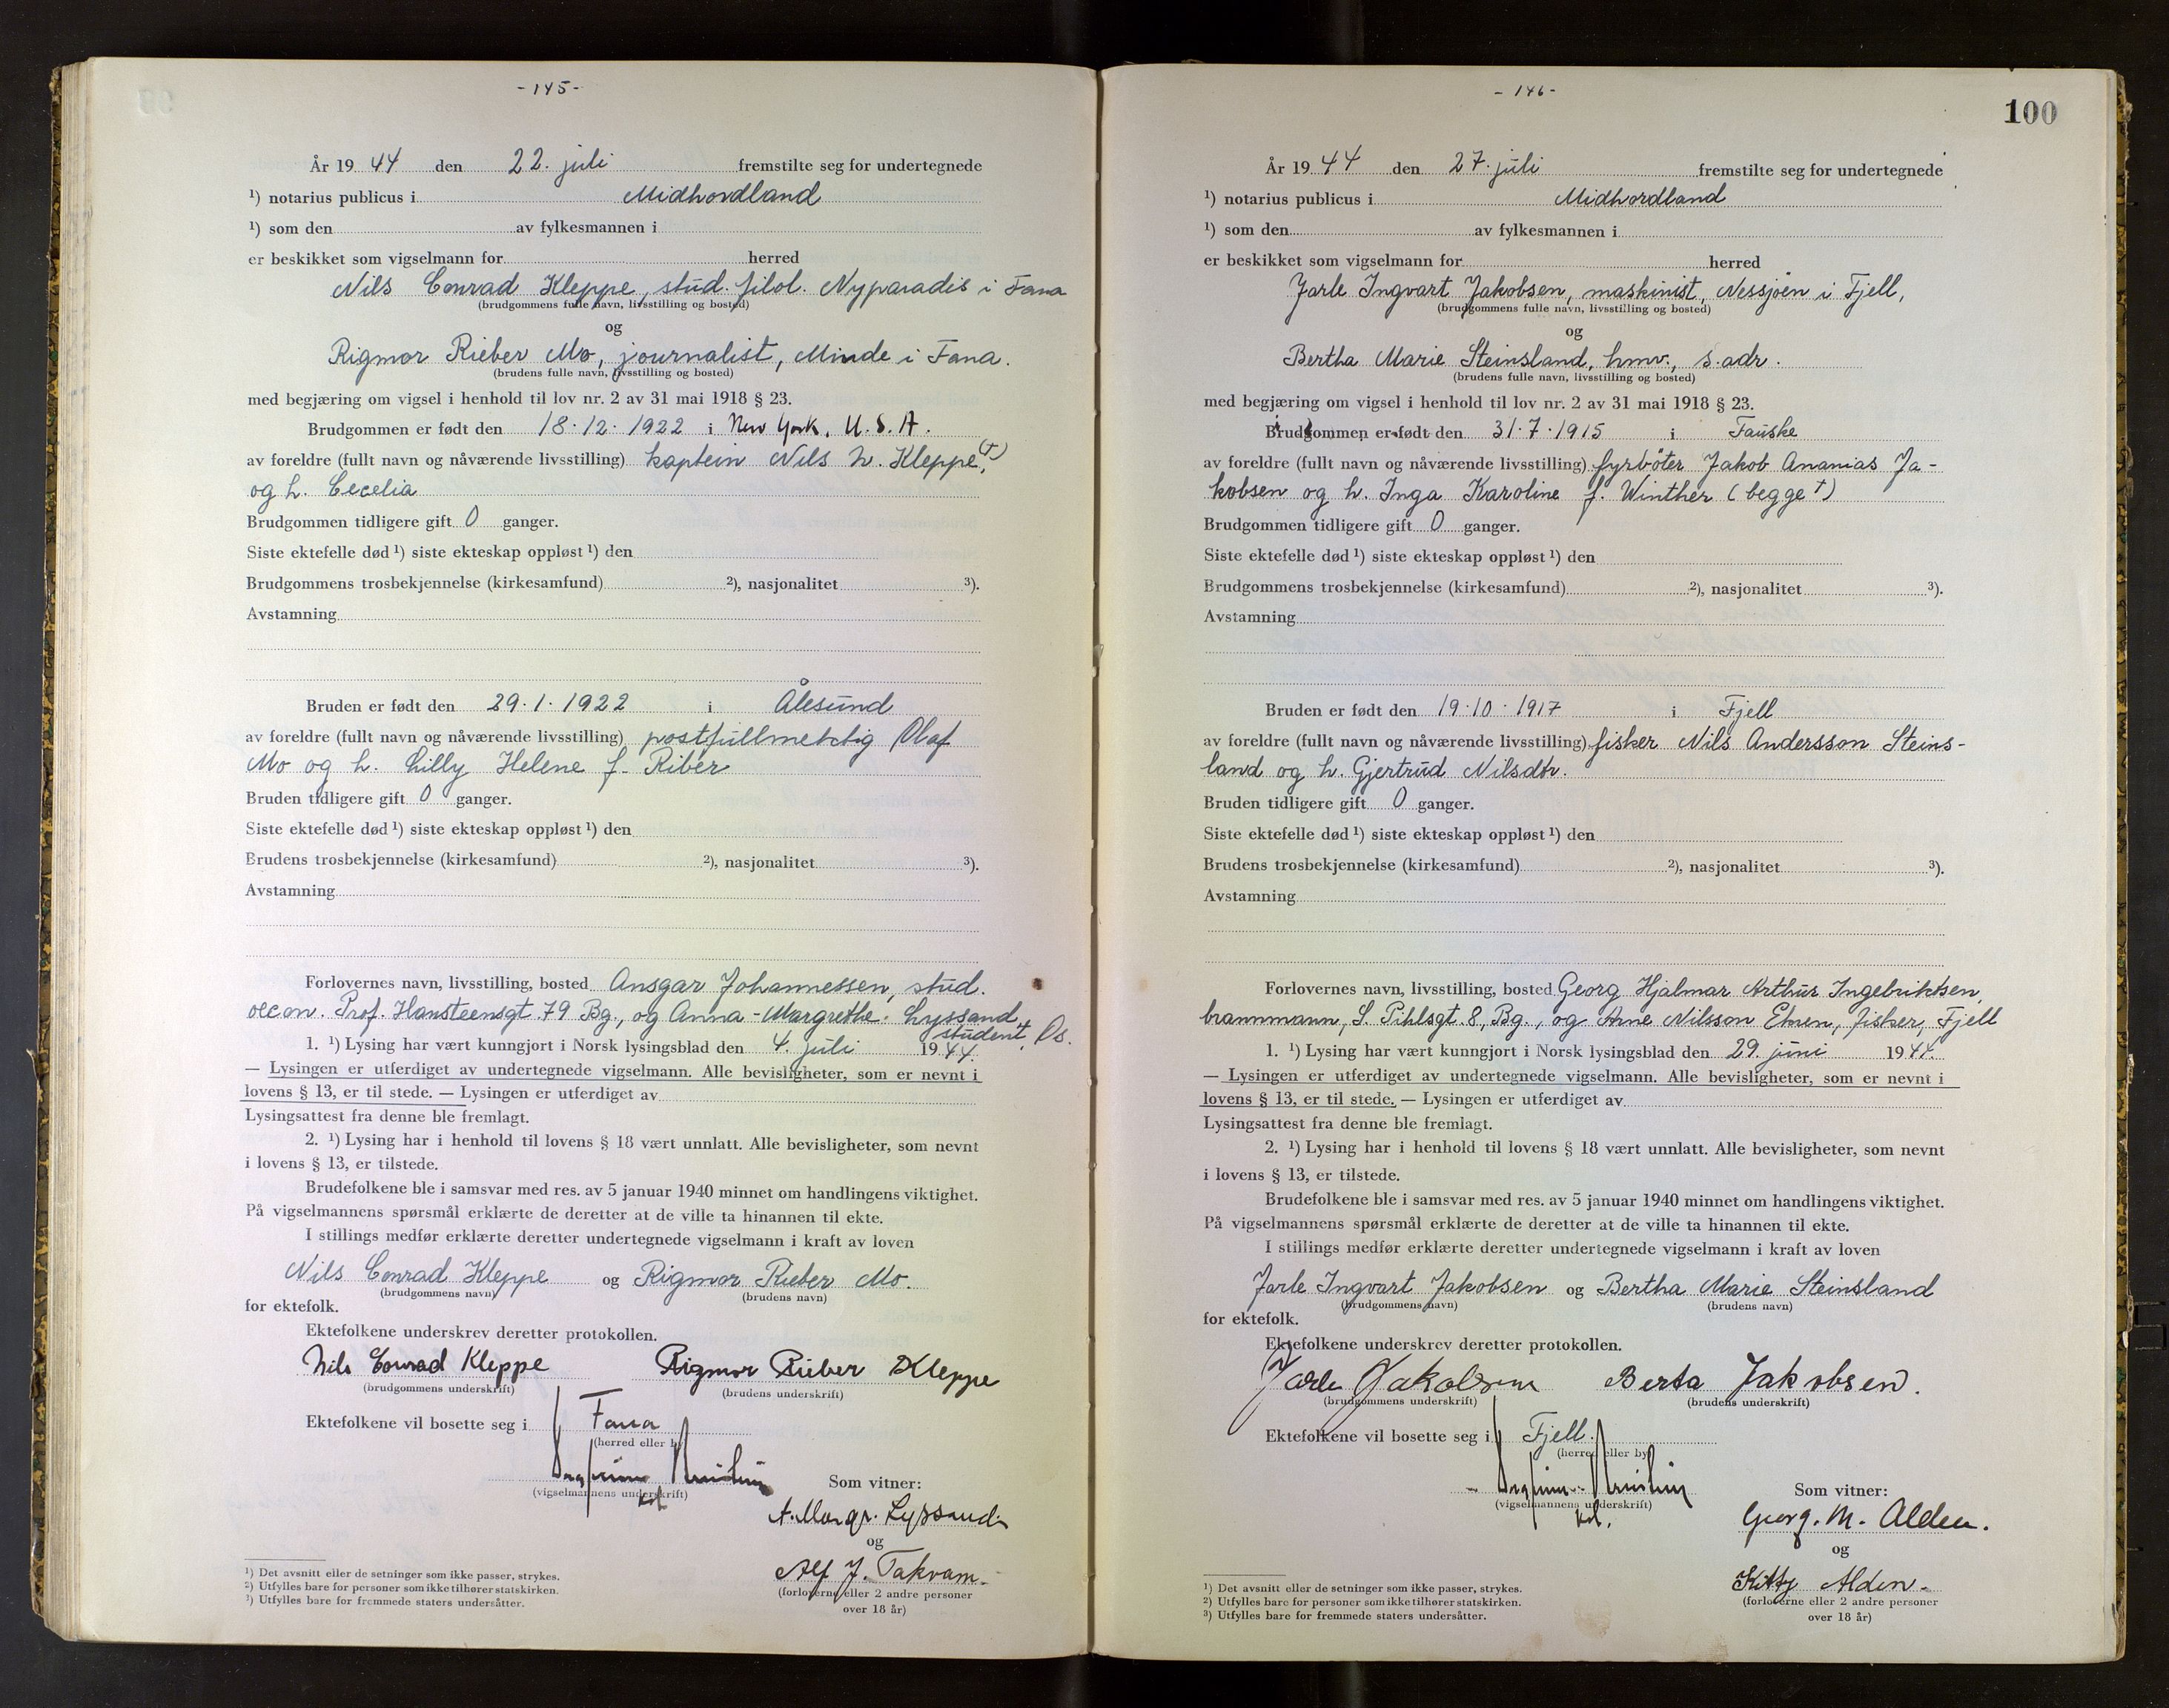 - 145 -
År 19 44 den 22. juli fremstilte seg for undertegnede
¹) notarius publicus i Midhordland
¹) som den av fylkesmannen i
er beskikket som vigselmann for herred
Nils Conrad Kleppe, stud. filol. Nyparadis i Fana
(brudgommens fulle navn, livsstilling og bosted)
og
Rigmor Rieber Mo, journalist, Minde i Fana.
(brudens fulle navn, livsstilling og bosted)
med begjæring om vigsel i henhold til lov nr. 2 av 31 mai 1918 § 23.
Brudgommen er født den 18.12.1922 i New York, U.S.A.
av foreldre (fullt navn og nåværende livsstilling) kaptein Nils N. Kleppe (†),
og h. Cecelia
Brudgommen tidligere gift 0 ganger.
Siste ektefelle død ¹) siste ekteskap oppløst ¹) den
Brudgommens trosbekjennelse (kirkesamfund) ²), nasjonalitet ³).
Avstamning
Bruden er født den 29.1.1922 i Ålesund
av foreldre (fullt navn og nåværende livsstilling) postfullmektig Olaf
Mo og h. Lilly Helene f. Riber
Bruden tidligere gift 0 ganger.
Siste ektefelle død ¹) siste ekteskap oppløst ¹) den
Brudens trosbekjennelse (kirkesamfund) ²), nasjonalitet ³).
Avstamning
Forlovernes navn, livsstilling, bosted Ansgar Johannessen, stud.
oecon. Prof. Hansteensgt. 79 Bg., og Anna-Margrethe Lyssand,
student, Os.
1. ¹) Lysing har vært kunngjort i Norsk lysingsblad den 4. juli 1944.
— Lysingen er utferdiget av undertegnede vigselmann. Alle bevisligheter, som er nevnt i
lovens § 13, er til stede. — Lysingen er utferdiget av
Lysingsattest fra denne ble fremlagt.
2. ¹) Lysing har i henhold til lovens § 18 vært unnlatt. Alle bevisligheter, som nevnt
i lovens § 13, er tilstede.
Brudefolkene ble i samsvar med res. av 5 januar 1940 minnet om handlingens viktighet.
På vigselmannens spørsmål erklærte de deretter at de ville ta hinannen til ekte.
I stillings medfør erklærte deretter undertegnede vigselmann i kraft av loven
Nils Conrad Kleppe og Rigmor Rieber Mo.
(brudgommens navn) (brudens navn)
for ektefolk.
Ektefolkene underskrev deretter protokollen.
Nils Conrad Kleppe Rigmor Rieber Kleppe
(brudgommens underskrift) (brudens underskrift)
Ektefolkene vil bosette seg i Fana
(herred eller by)
(vigselmannens underskrift)
Som vitner:
A. Margr. Lyssand
og
Alf J. Takvam
(forloverne eller 2 andre personer
over 18 år)
¹) Det avsnitt eller de setninger som ikke passer, strykes.
²) Utfylles bare for personer som ikke tilhører statskirken.
³) Utfylles bare for fremmede staters undersåtter.
- 146 -
100
År 19 44 den 27. juli fremstilte seg for undertegnede
¹) notarius publicus i Midhordland
¹) som den av fylkesmannen i
er beskikket som vigselmann for herred
Jarle Ingvart Jakobsen, maskinist, Nessjøen i Fjell,
(brudgommens fulle navn, livsstilling og bosted)
og
Bertha Marie Steinsland, hmv., s.adr.
(brudens fulle navn, livsstilling og bosted)
med begjæring om vigsel i henhold til lov nr. 2 av 31 mai 1918 § 23.
Brudgommen er født den 31.7.1915 i Fauske
av foreldre (fullt navn og nåværende livsstilling) fyrbøter Jakob Ananias Ja-
kobsen og h. Inga Karoline f. Winther (begge †)
Brudgommen tidligere gift 0 ganger.
Siste ektefelle død ¹) siste ekteskap oppløst ¹) den
Brudgommens trosbekjennelse (kirkesamfund) ²), nasjonalitet ³).
Avstamning
Bruden er født den 19.10.1917 i Fjell
av foreldre (fullt navn og nåværende livsstilling) fisker Nils Andersson Steins-
land og h. Gjertrud Nilsdtr.
Bruden tidligere gift 0 ganger.
Siste ektefelle død ¹) siste ekteskap oppløst ¹) den
Brudens trosbekjennelse (kirkesamfund) ²), nasjonalitet ³).
Avstamning
Forlovernes navn, livsstilling, bosted Georg Hjalmar Arthur Ingebriktsen,
brannmann, S. Pihlsgt. 8, Bg., og Arne Nilsson Ekren, fisker, Fjell
1. ¹) Lysing har vært kunngjort i Norsk lysingsblad den 29. juni 1944.
— Lysingen er utferdiget av undertegnede vigselmann. Alle bevisligheter, som er nevnt i
lovens § 13, er til stede. — Lysingen er utferdiget av
Lysingsattest fra denne ble fremlagt.
2. ¹) Lysing har i henhold til lovens § 18 vært unnlatt. Alle bevisligheter, som nevnt
i lovens § 13, er tilstede.
Brudefolkene ble i samsvar med res. av 5 januar 1940 minnet om handlingens viktighet.
På vigselmannens spørsmål erklærte de deretter at de ville ta hinannen til ekte.
I stillings medfør erklærte deretter undertegnede vigselmann i kraft av loven
Jarle Ingvart Jakobsen og Bertha Marie Steinsland
(brudgommens navn) (brudens navn)
for ektefolk.
Ektefolkene underskrev deretter protokollen.
Jarle Jakobsen Berta Jakobsen.
(brudgommens underskrift) (brudens underskrift)
Ektefolkene vil bosette seg i Fjell.
(herred eller by)
(vigselmannens underskrift)
Som vitner:
Georg. M. Alden.
og
Kitty Alden.
(forloverne eller 2 andre personer
over 18 år)
¹) Det avsnitt eller de setninger som ikke passer, strykes.
²) Utfylles bare for personer som ikke tilhører statskirken.
³) Utfylles bare for fremmede staters undersåtter.